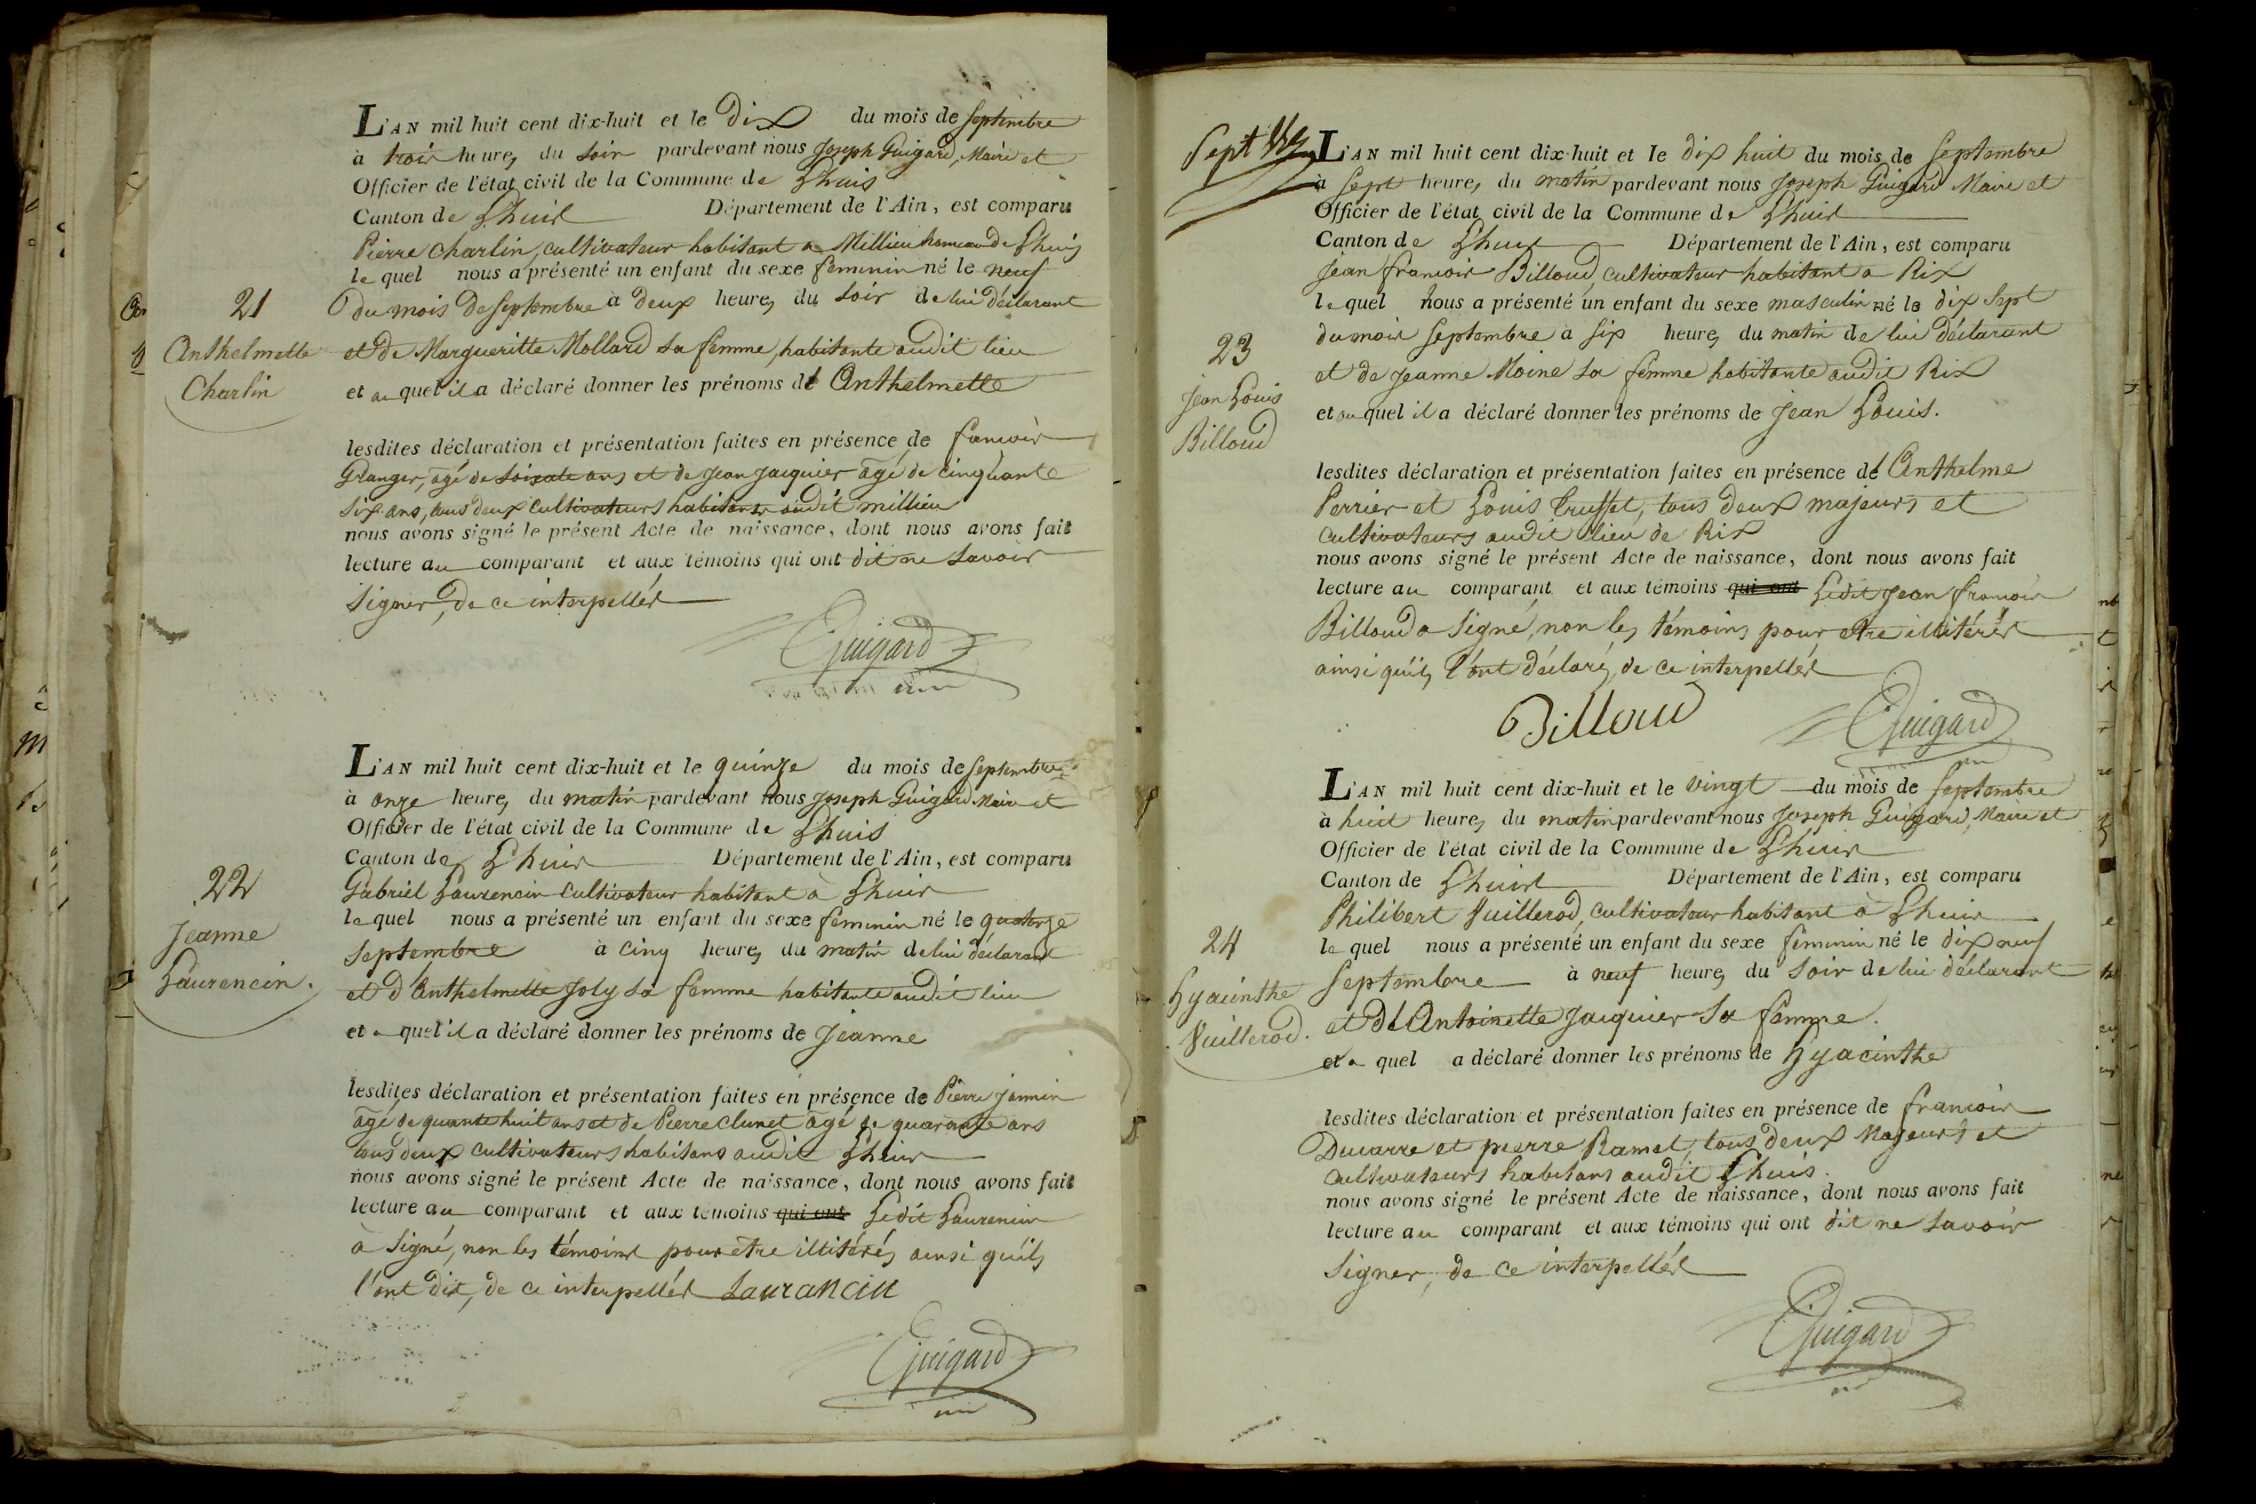 L'AN mil huit cent dix-huit et le Dix du mois de septembre
à trois heures du soir pardevant nous Joseph Guigard, Maire et
Officier de l'état civil de la Commune de Lhuis
Canton de Lhuis Département de l'Ain, est comparu
Pierre Charlin, cultivateur habitant a Millieu hameau de Lhuis
le quel nous a présenté un enfant du sexe feminin né le neuf
du mois de septembre à deux heures du soir de lui déclarant
et de Margueritte Mollard sa femme, habitante audit lieu
et au quel il a déclaré donner les prénoms de Anthelmette
21
Anthelmette
Charlin
lesdites déclaration et présentation faites en présence de francois
Granger, agé de soixate ans et de Jean Jacquier agé de cinquante
six ans, tous deux cultivateurs habitans audit millieu
nous avons signé le présent Acte de naissance, dont nous avons fait
lecture au comparant et aux témoins qui ont dit ne savoir
signer, de ce interpellés
Guigard
L'AN mil huit cent dix-huit et le quinze du mois de septembre
à onze heures du matin pardevant nous Joseph Guigard Maire et
Officier de l'état civil de la Commune de Lhuis
Canton de Lhuis Département de l'Ain, est comparu
Gabriel Laurencin cultivateur habitant à Lhuis
le quel nous a présenté un enfant du sexe feminin né le quatorze
septembre à cinq heures du matin de lui déclarant
et d'Anthelmette Joly sa femme habitante audit lieu
et a quel il a déclaré donner les prénoms de Jeanne
22
Jeanne
Laurencin.
lesdites déclaration et présentation faites en présence de Pierre Jannin
agé de quante huit ans et de Pierre Clunet agé de quarante ans
tous deux cultivateurs habitans audit Lhuis
nous avons signé le présent Acte de naissance, dont nous avons fait
lecture au comparant et aux témoins qui ont Ledit Laurencin
à signé, non les témoins pour etre illitérés ainsi qu'ils
l'ont dit, de ce interpellés Laurancin
Guigard
Sept
L'AN mil huit cent dix-huit et le dix huit du mois de septembre
à sept heures du matin pardevant nous Joseph Guigard Maire et
Officier de l'état civil de la Commune de Lhuis
Canton de Lhuis Département de l'Ain, est comparu
Jean francois Billoud, cultivateur habitant a Rix
le quel nous a présenté un enfant du sexe masculin né le dix sept
du mois septembre à six heures du matin de lui déclarant
et de Jeanne Moine sa femme habitante audit Rix
et au quel il a déclaré donner les prénoms de Jean Louis.
23
Jean Louis
Billoud
lesdites déclaration et présentation faites en présence de Anthelme
Perrier et Louis Truffet, tous deux majeurs et
cultivateurs audit lieu de Rix
nous avons signé le présent Acte de naissance, dont nous avons fait
lecture au comparant et aux témoins qui ont Ledit Jean francois
Billoud a signé, non les témoins pour etre illitérés
ainsi qu'ils l'ont déclaré, de ce interpellés
Billoud
Guigard
L'AN mil huit cent dix-huit et le vingt du mois de septembre
à huit heures du matin pardevant nous Joseph Guigard, Maire et
Officier de l'état civil de la Commune de Lhuis
Canton de Lhuis Département de l'Ain, est comparu
Philibert Vuillerod, cultivateur habitant à Lhuis
le quel nous a présenté un enfant du sexe feminin né le dix neuf
septembre à neuf heures du soir de lui déclarant
et de Antoinette Jacquier sa femme.
et a quel a déclaré donner les prénoms de Hyacinthe
24
Hyacinthe
Vuillerod.
lesdites déclaration et présentation faites en présence de francois
Ducarre et pierre Ramel, tous deux majeurs et
cultivateurs habitans audit Lhuis.
nous avons signé le présent Acte de naissance, dont nous avons fait
lecture au comparant et aux témoins qui ont dit ne savoir
signer, de ce interpellés
Guigard